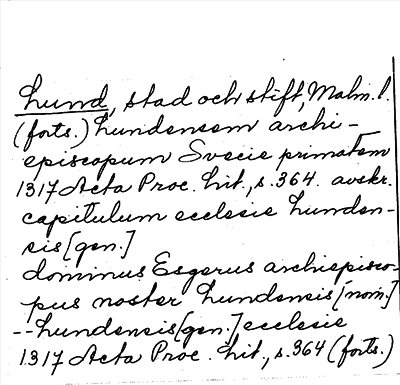 Lund, stad och stift, Malm. l.
(forts.) Lundensem archi-
episcopum Svecie primatem
1317 Acta Proc. Lit., s. 364. avskr.
capitulum ecclesie Lunden-
sis [gen.]
dominus Esgerus archiepisco-
pus noster Lundensis [nom.]
-- Lundensis [gen.] ecclesie
1317 Acta Proc. Lit., s. 364 (forts.)